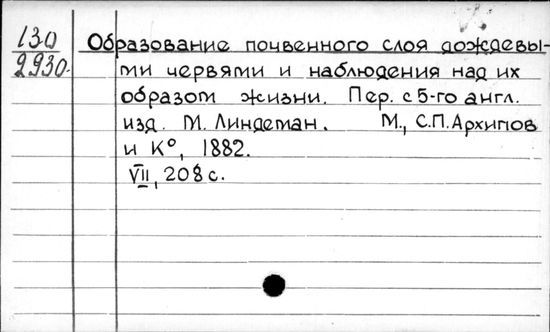 130
2930.
Образование почвенного слоя дождевы-
ми червями и наблюдения над их
образом жизни. Пер. с 5-го англ.
изд. М. Линдеман. М., С.П. Архипов
и К°, 1882.
VII, 208 с.